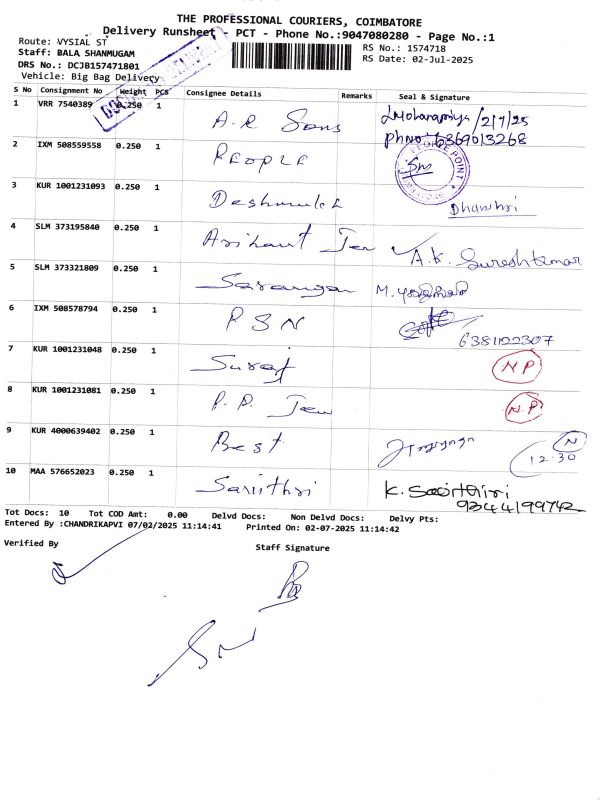 THE PROFESSIONAL COURIERS, COIMBATORE
Delivery Runsheet - PCT - Phone No.:9047080280 - Page No.:1
Route: VYSIAL ST
Staff: BALA SHANMUGAM
DRS No.: DCJB157471801
Vehicle: Big Bag Delivery
RS No.: 1574718
RS Date: 02-Jul-2025
S No Consignment No Weight PCS Consignee Details Remarks Seal & Signature
1 VRR 7540389 0.250 1 A.R. Sons /2/7/25
Ph no: 6369013268
2 IXM 508559558 0.250 1 PEOPLE PEOPLE POINT
3 KUR 1001231093 0.250 1 Deshmukh Dhanshri
4 SLM 373195840 0.250 1 Arihant Jew A.K. Sureshkumar
5 SLM 373321809 0.250 1 Sarangan M.
6 IXM 508578794 0.250 1 PSN
6381122307
7 KUR 1001231048 0.250 1 Suraj NP
8 KUR 1001231081 0.250 1 P.P. Jew N.P
9 KUR 4000639402 0.250 1 Best N
12.30
10 MAA 576652023 0.250 1 Saviithri K.
9344199742
Tot Docs: 10 Tot COD Amt: 0.00 Delvd Docs: Non Delvd Docs: Delvy Pts:
Entered By :CHANDRIKAPVI 07/02/2025 11:14:41 Printed On: 02-07-2025 11:14:42
Verified By
Staff Signature